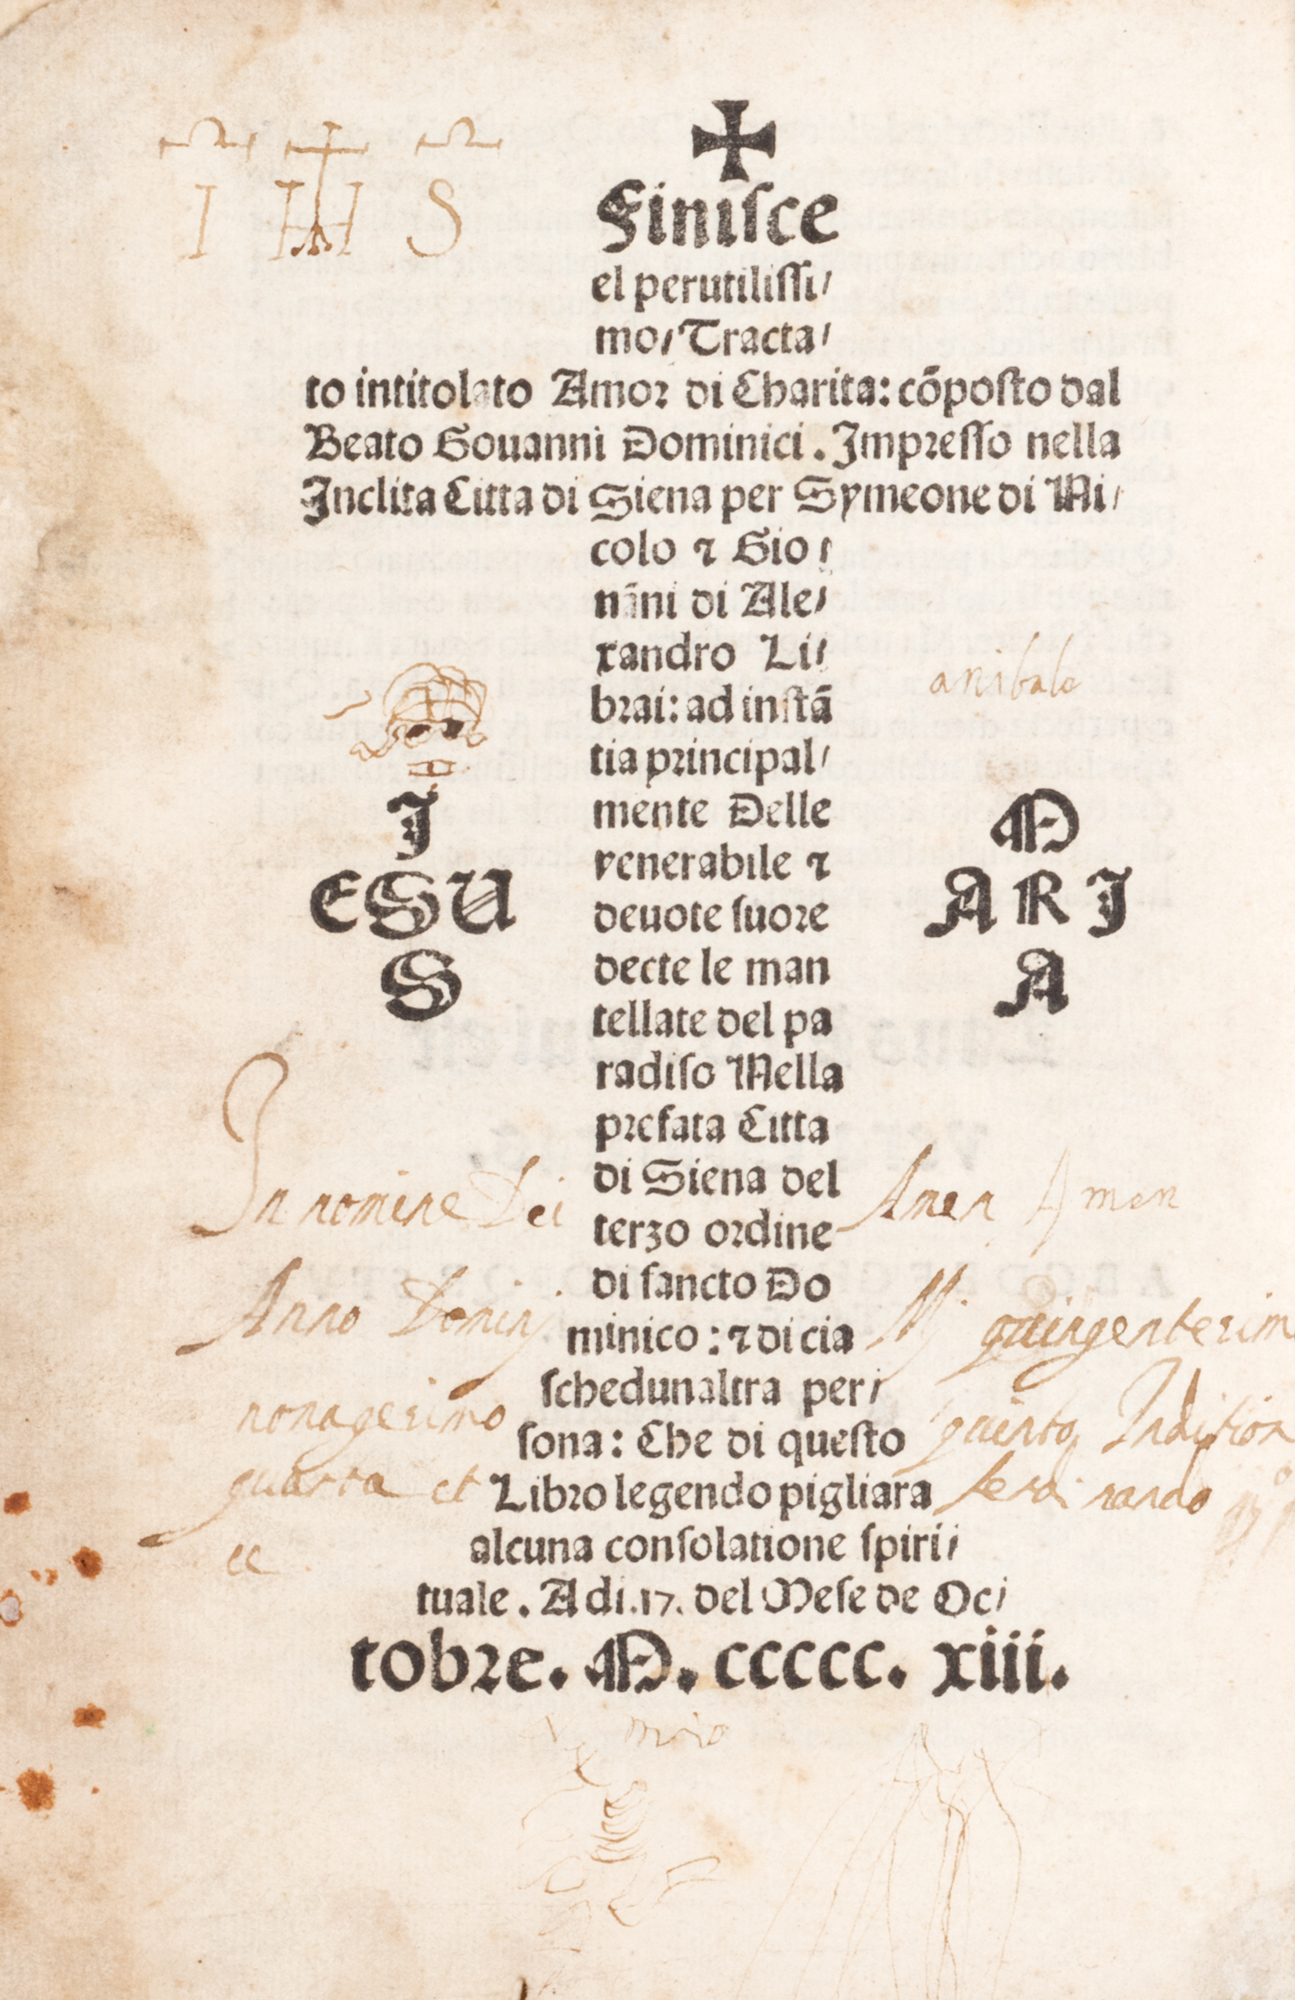 IHS
✠
Finisce
el perutilissi/
mo/Tracta/
to intitolato Amor di Charita: cōposto dal
Beato Gouanni Dominici. Impresso nella
Inclita Citta di Siena per Symeone di Ni/
colo ⁊ Gio/
nāni di Ale/
xandro Li/
brai: ad instā
tia principal/
mente Delle
venerabile ⁊
deuote suore
decte le man
tellate del pa
radiso Nella
prefata Citta
di Siena del
terzo ordine
di sancto Do
minico: ⁊ di cia
schedunaltra per/
sona: Che di questo
Libro legendo pigliara
alcuna consolatione spiri/
tuale. Adi.17. del Mese de Oc/
tobre. M. ccccc. xiii.
anibale
J
ESU
S
M
ARI
A
In nomine Dei Amen Amen
Anno Domini M quingentesim
nonagesimo quinto Indition
quarta et ferdinando
mio